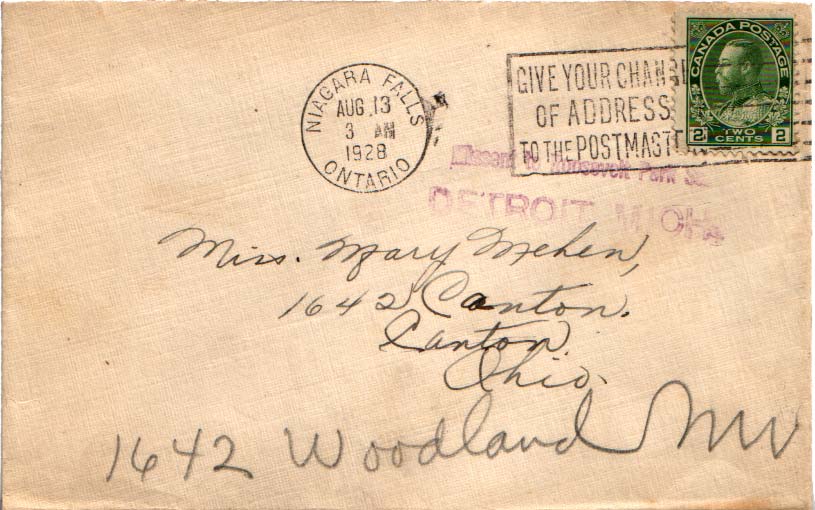 NIAGARA FALLS
AUG 13
3 AM
1928
ONTARIO
GIVE YOUR CHAN
OF ADDRESS
TO THE POSTMAST
CANADA POSTAGE
2 TWO CENTS 2
Missent to Roosevelt Park
DETROIT, MICH.
Miss. Mary Mehen,
1642 Canton.
Canton
Ohio.
1642 Woodland NW